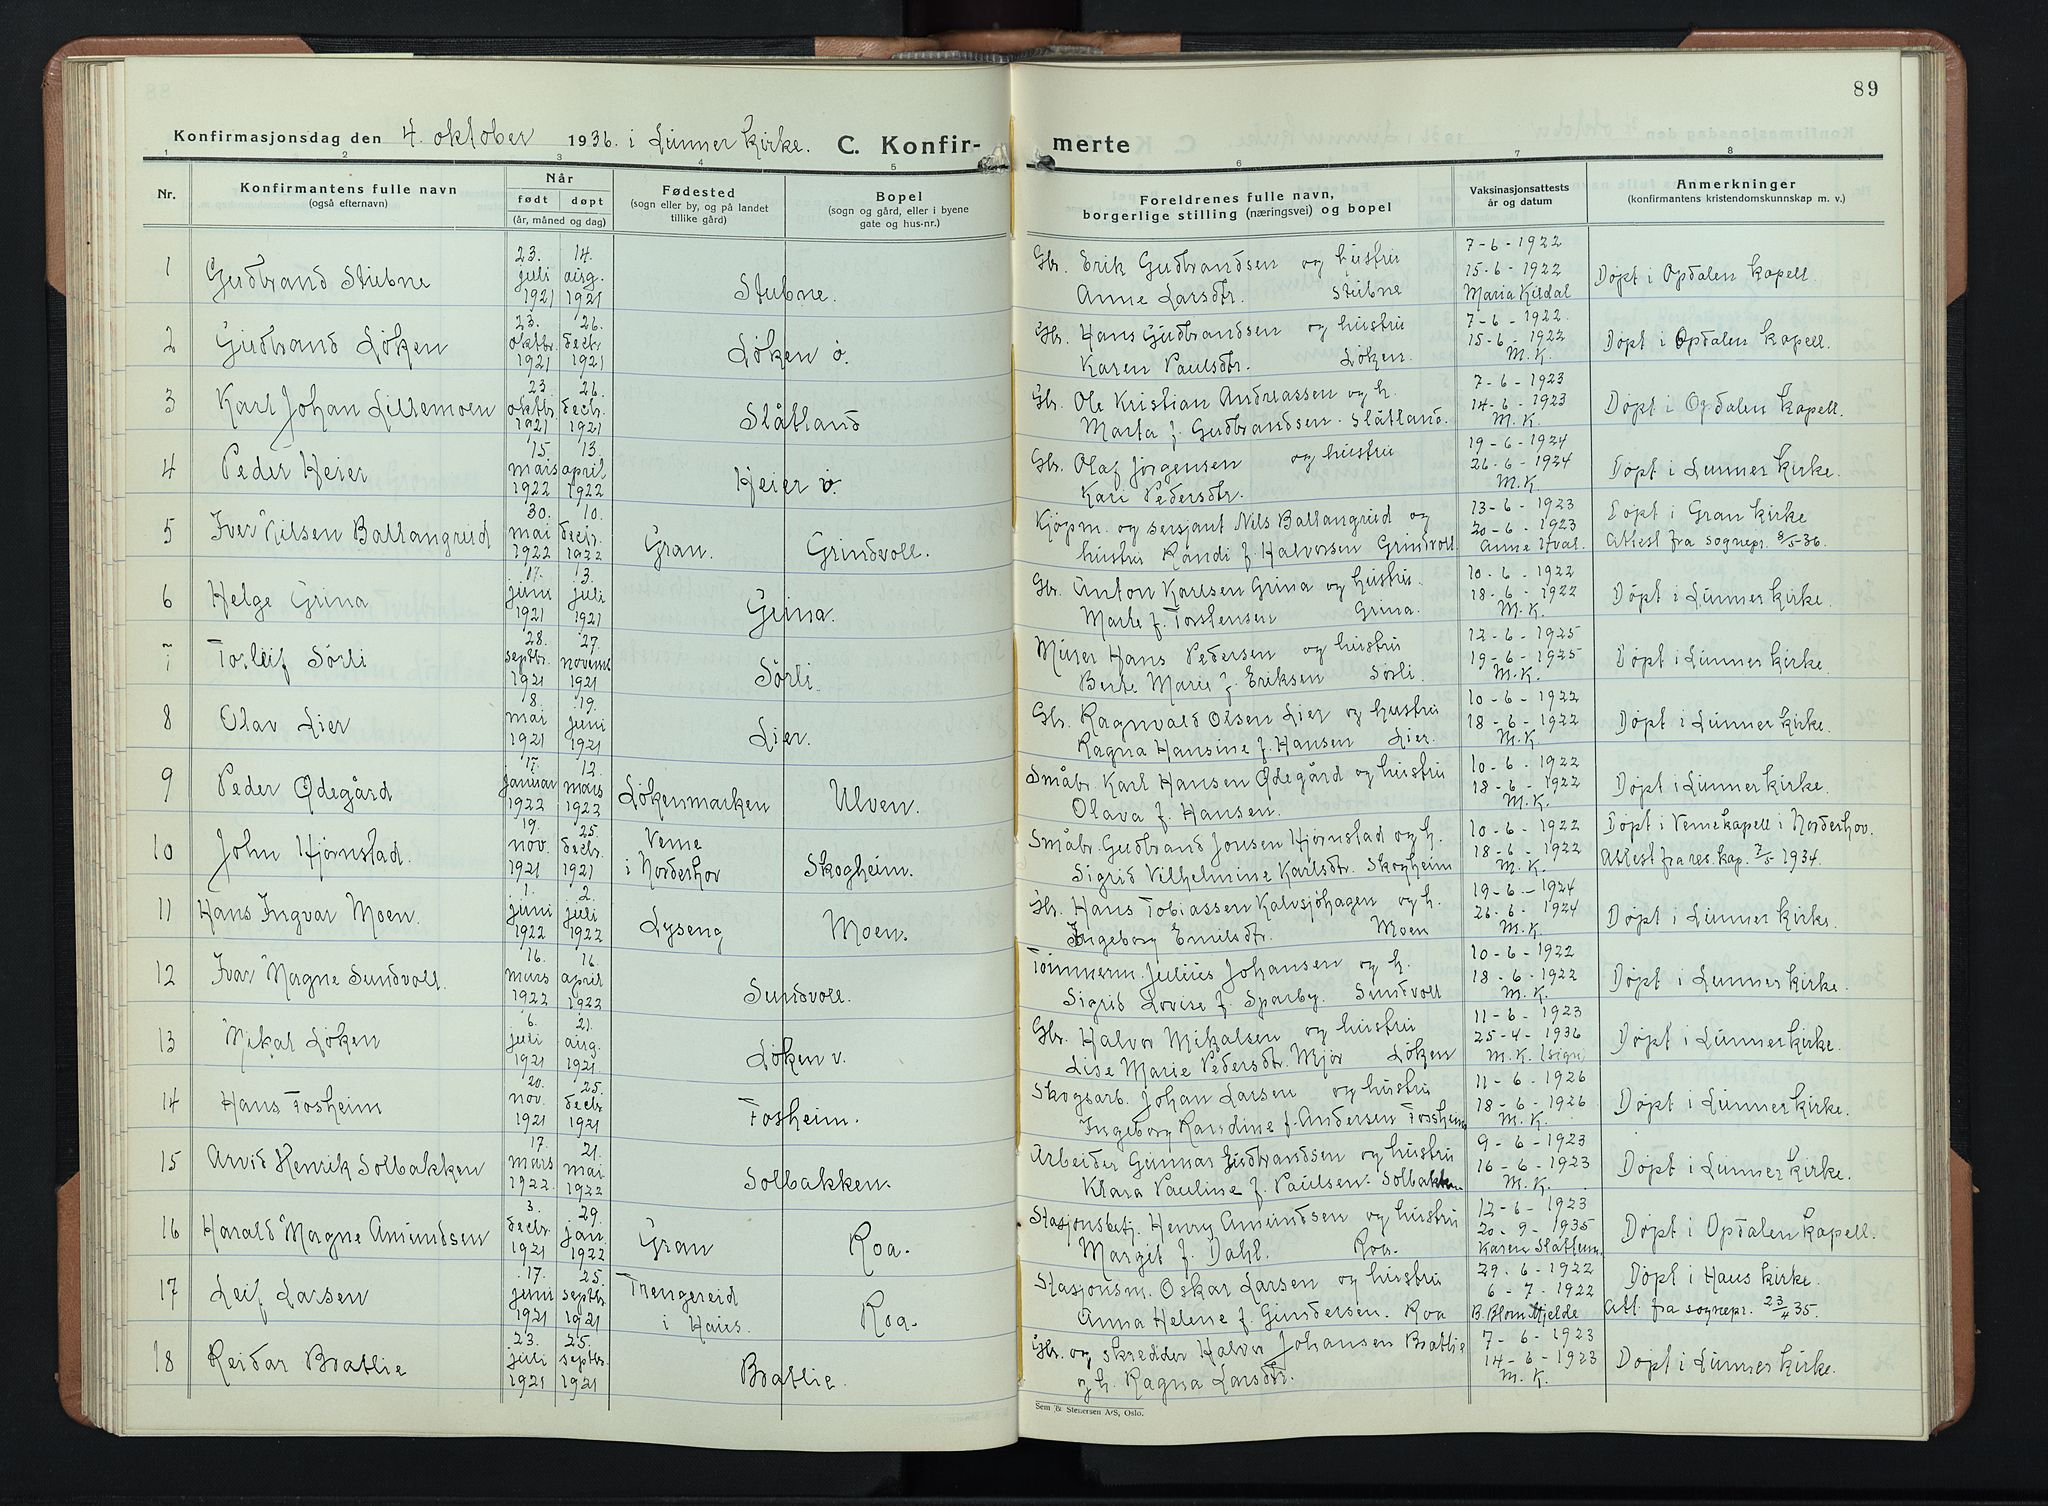 89
Konfirmasjonsdag den 4. oktober 1936. i Lunner kirke. C. Konfir- merte
1 2 3 4 5 6 7 8
Nr. Konfirmantens fulle navn (også efternavn) Når født døpt (år, måned og dag) Fødested (sogn eller by, og på landet tillike gård) Bopel (sogn og gård, eller i byene gate og hus-nr.) Foreldrenes fulle navn, borgerlige stilling (næringsvei) og bopel Vaksinasjonsattests år og datum Anmerkninger (konfirmantens kristendomskunnskap m. v.)
1 Gudbrand Stubne 23. juli 1921 14. aug. 1921 Stubne. Gbr. Erik Gudbrandsen og hustru 7-6-1922
Anne Larsdtr. Stubne 15-6-1922 Maria Kildal Døpt i Opdalen kapell.
2 Gudbrand Løken 23. oktbr. 1921 26. decbr. 1921 Løken ø. Gbr. Hans Gudbrandsen og hustru 7-6-1922.
Karen Paulsdtr. Løken. 15-6-1922 M.K. Døpt i Opdalen kapell.
3 Karl Johan Lillemoen 23. oktbr. 1921 26. decbr. 1921 Slåtland Gbr. Ole Kristian Andreassen og h. 7-6-1923
Marta f. Gudbrandsen. Slåtland. 14-6-1923 M.K. Døpt i Opdalen kapell.
4 Peder Heier 15. mars 1922 13. april 1922 Heier v. Gbr. Olaf Jørgensen og hustru 19-6-1924
Kari Pedersdtr. 26-6-1924 M.K. Døpt i Lunner kirke.
5 Iver Nilsen Ballangrud 30. mai 1922 10. decbr. 1922 Gran. Grindvoll. Kjøpm. og sersjant Nils Ballangrud og 13-6-1923 Døpt i Gran kirke
hustru Randi f. Halvorsen Grindvoll 20-6-1923 Anne Hval. Attest fra sognepr. 8/5-36.
6 Helge Grina 17. juni 1921 3. juli 1921 Grina. Gbr. Anton Karlsen Grina og hustru. 10-6-1922
Marte f. Torstensen Grina. 18-6-1922 M.K. Døpt i Lunner kirke.
7 Torleif Sørli 28. septbr. 1921 27. novemb. 1921 Sørli. Murer Hans Pedersen og hustru 12-6-1925
Berte Marie f. Eriksen Sørli. 19-6-1925 M.K. Døpt i Lunner kirke.
8 Olav Lier 8. mai 1921 19. juni 1921 Lier. Gbr. Ragnvald Olsen Lier og hustru 10-6-1922
Ragna Hansine f. Hansen Lier. 18-6-1922 M.K. Døpt i Lunner kirke.
9 Peder Ødegård 17. januar 1922 12. mars 1922 Løkenmarken Ulven. Småbr. Karl Hansen Ødegård og hustru 10-6-1922
Olava f. Hansen. 18-6-1922 M.K. Døpt i Lunner kirke.
10 John Hjørnstad. 19. nov. 1921 25. decbr. 1921 Veme i Norderhov Skogheim. Småbr. Gudbrand Jonsen Hjørnstad og h. 10-6-1922 Døpt i Veme kapell i Norderhov.
Sigrid Vilhelmine Karlsdtr. Skogheim 18-6-1922 M.K. Attest fra res. kap. 7/5-1934.
11 Hans Ingvar Moen. 1. juni 1922 2. juli 1922 Lyseng Moen. Gbr. Hans Tobiassen Kalvsjøhagen og h. 19-6-1924
Ingeborg Emilsdtr. Moen 26-6-1924 M.K. Døpt i Lunner kirke.
12 Ivar Magne Sundvoll. 16. mars 1922 16. april 1922 Sundvoll. Tømmerm. Julius Johansen og h. 10-6-1922
Sigrid Lovise f. Sparby. Sundvoll 18-6-1922 M.K. Døpt i Lunner kirke.
13 Mikal Løken 6. juli 1921 21. aug. 1921 Løken v. Gbr. Halvor Mikalsen og hustru 11-6-1923
Lise Marie Pedersdtr. Mjør Løken 25-4-1936 M.K. (sign) Døpt i Lunner kirke.
14 Hans Tosheim 20. nov. 1921 25. decbr. 1921 Tosheim. Skogsarb. Johan Larsen og hustru 11-6-1926
Ingeborg Randine f. Andersen Tossheim 18-6-1926 M.K. Døpt i Lunner kirke.
15 Arvid Henrik Solbakken 17. mars 1922. 21. mai 1922 Solbakken. Arbeider Gunnar Gudbrandsen og hustru 9-6-1923
Klara Pauline f. Paulsen. Solbakken 16-6-1923 M.K. Døpt i Lunner kirke.
16 Harald Magne Amundsen 3. decbr. 1921 29. jan. 1922 Gran Roa. Stasjonsbetj. Henry Amundsen og hustru 12-6-1923
Margit f. Dahl. Roa. 20.-9-1935 Karen Slattum. Døpt i Opdalen kapell.
17 Leif Larsen 17. juni 1921 25. septbr. 1921 Trengereid i Haus. Roa. Stasjonsm. Oskar Larsen og hustru 29.6-1922 Døpt i Haus kirke.
Anna Helene f. Gundersen. Roa 6-7-1922 B. Blom Hjelde Att. fra sognepr. 23/4 35.
18 Reidar Bratlie 23. juli 1921 25. septbr. 1921 Bratlie. Gbr. og skredder Halvor Johansen Bratlie 7-6-1923
og h. Ragna Larsdtr. 14-6-1923 M.K. Døpt i Lunner kirke.
Sem & Stenersen A/S, Oslo.